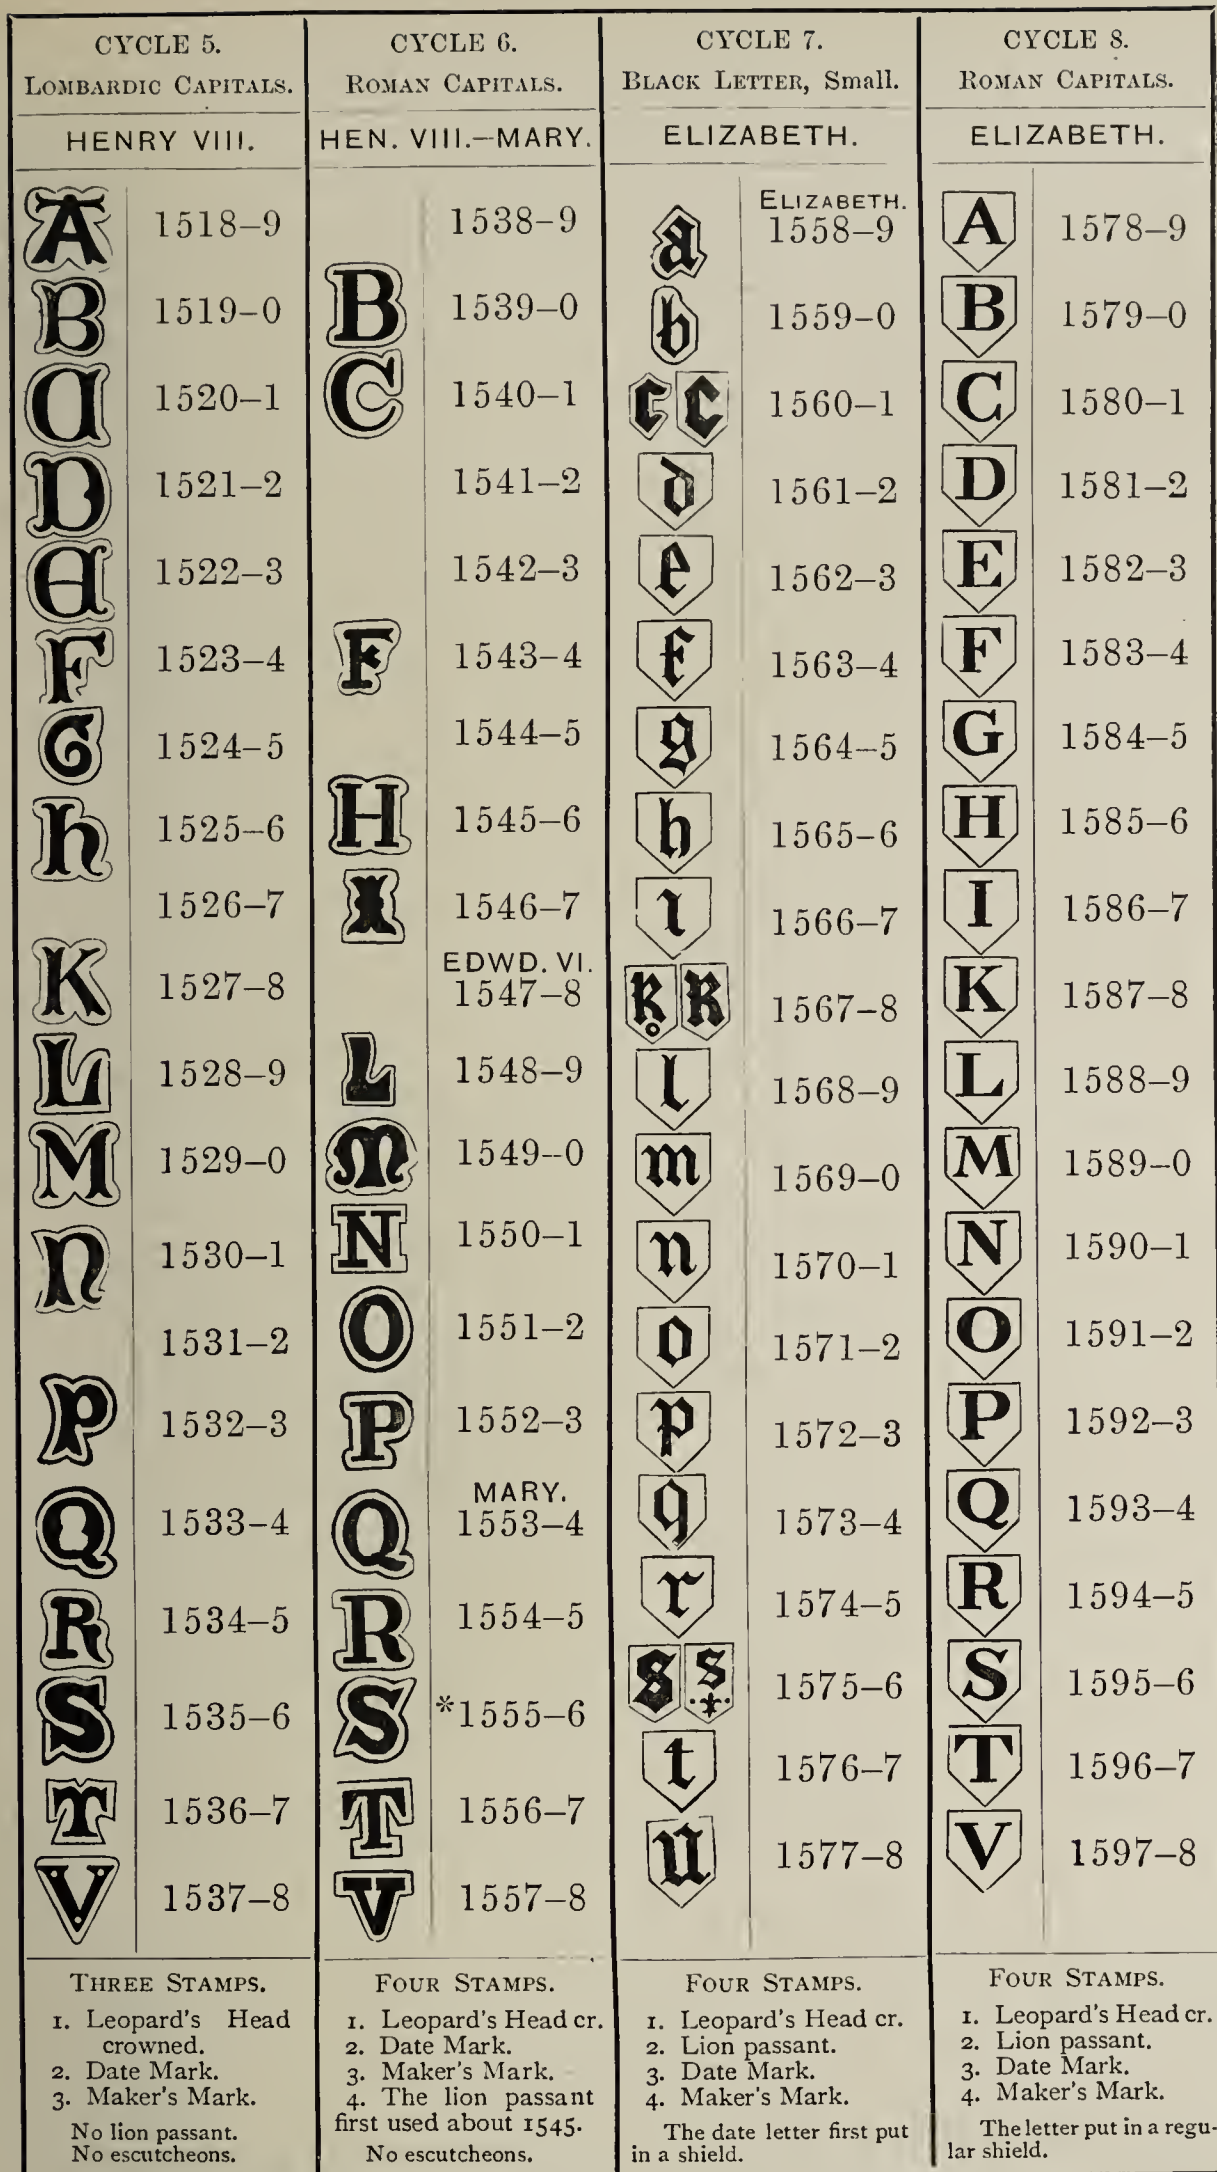 CYCLE 5.
LOMBARDIC CAPITALS.
HENRY VIII.
A 1518–9
B 1519–0
C 1520–1
D 1521–2
E 1522–3
F 1523–4
G 1524–5
h 1525–6
1526–7
K 1527–8
L 1528–9
M 1529–0
n 1530–1
1531–2
P 1532–3
Q 1533–4
R 1534–5
S 1535–6
T 1536–7
V 1537–8
THREE STAMPS.
1. Leopard's Head
crowned.
2. Date Mark.
3. Maker's Mark.
No lion passant.
No escutcheons.
CYCLE 6.
ROMAN CAPITALS.
HEN. VIII.–MARY.
1538–9
B 1539–0
C 1540–1
1541–2
1542–3
F 1543–4
1544–5
H 1545–6
I 1546–7
EDWD. VI.
1547–8
L 1548–9
M 1549--0
N 1550–1
O 1551–2
P 1552–3
MARY.
Q 1553–4
R 1554–5
S *1555–6
T 1556–7
V 1557–8
FOUR STAMPS.
1. Leopard's Head cr.
2. Date Mark.
3. Maker's Mark.
4. The lion passant
first used about 1545.
No escutcheons.
CYCLE 7.
BLACK LETTER, Small.
ELIZABETH.
ELIZABETH.
a 1558–9
b 1559–0
c c 1560–1
d 1561–2
e 1562–3
f 1563–4
g 1564–5
h 1565–6
i 1566–7
k k 1567–8
l 1568–9
m 1569–0
n 1570–1
o 1571–2
p 1572–3
q 1573–4
r 1574–5
s s 1575–6
t 1576–7
u 1577–8
FOUR STAMPS.
1. Leopard's Head cr.
2. Lion passant.
3. Date Mark.
4. Maker's Mark.
The date letter first put
in a shield.
CYCLE 8.
ROMAN CAPITALS.
ELIZABETH.
A 1578–9
B 1579–0
C 1580–1
D 1581–2
E 1582–3
F 1583–4
G 1584–5
H 1585–6
I 1586–7
K 1587–8
L 1588–9
M 1589–0
N 1590–1
O 1591–2
P 1592–3
Q 1593–4
R 1594–5
S 1595–6
T 1596–7
V 1597–8
FOUR STAMPS.
1. Leopard's Head cr.
2. Lion passant.
3. Date Mark.
4. Maker's Mark.
The letter put in a regu-
lar shield.